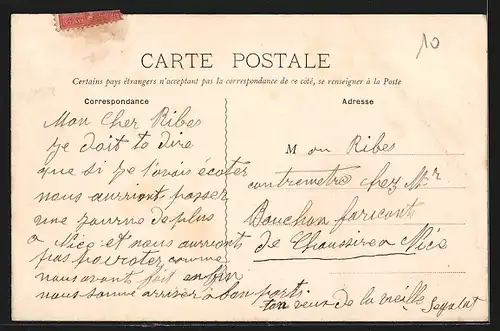 10
CARTE POSTALE
Certains pays étrangers n'acceptant pas la correspondance de ce côté, se renseigner à la Poste
Correspondance
Mon Cher Ribes
je doit te dire
que si je t'avais écoter
nous aurriont passer
une journe de plus
a Nice et nous aurriont
pas poiroter comme
nous avont fait enfin
nous somme arriser à bon port
ton veux de la vieille
Adresse
M on Ribes
contremetre chez Mr
Bouchon faricant
de Chaussirea Nice